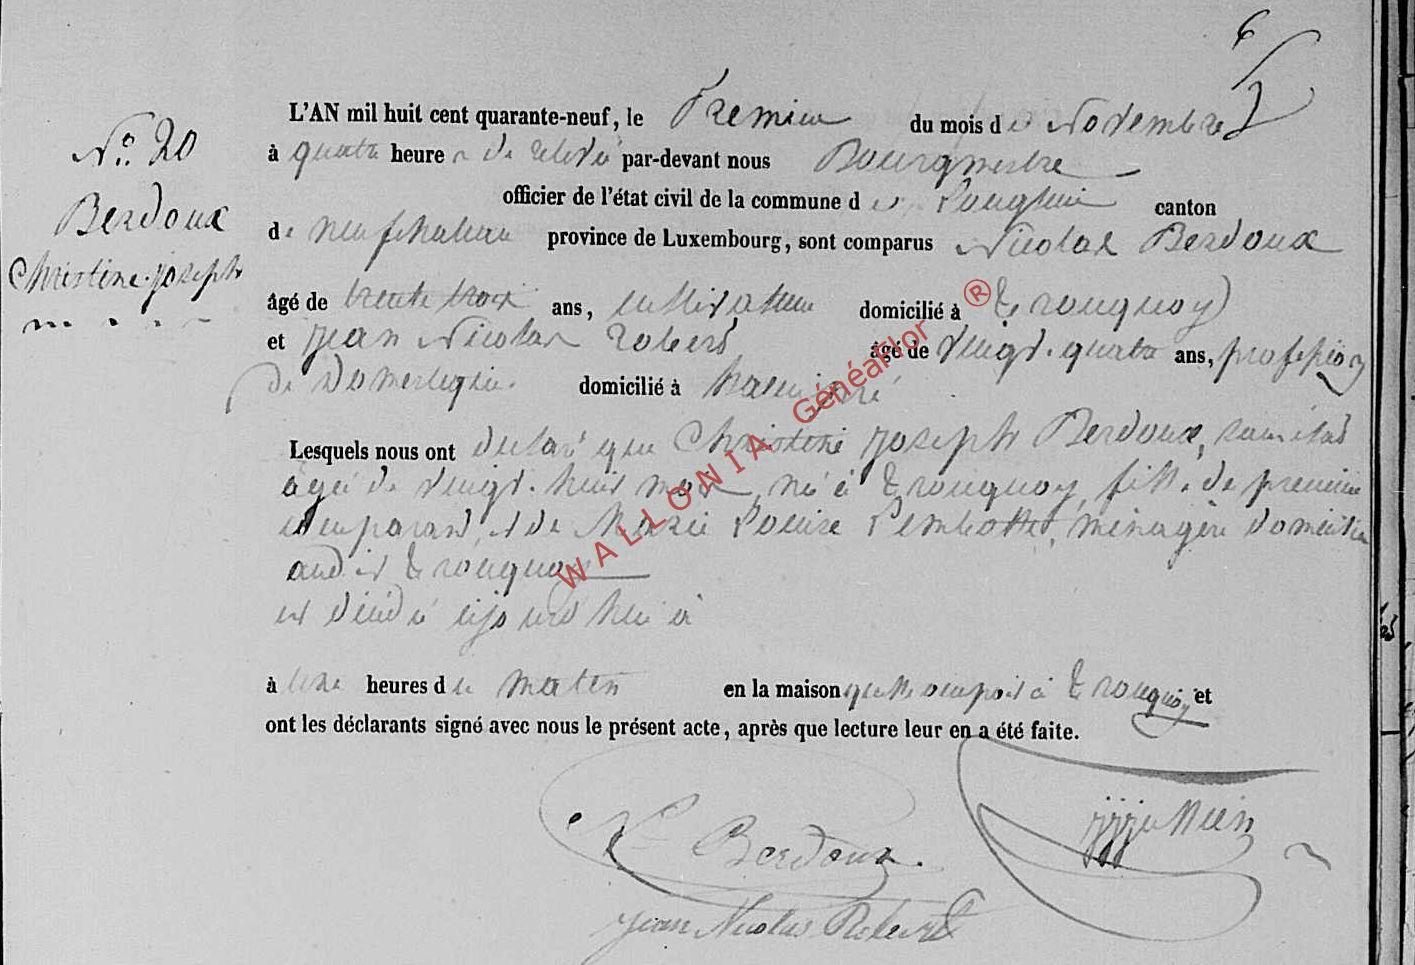 6
N° 20
Berdoux
Christine-joseph
L'AN mil huit cent quarante-neuf, le Premier du mois de Novembre
à quatre heures de relevé par-devant nous Bourgmestre
officier de l'état civil de la commune de Longlier canton
de neufchateau province de Luxembourg, sont comparus Nicolas Berdoux
âgé de trente trois ans, cultivateur domicilié à tronquoy
et jean Nicolas robert âgé de vingt-quatre ans, profession
de Domestique domicilié à
Lesquels nous ont declaré que Christine joseph Berdoux,
agée de vingt-huit mois né à tronquoy, fille de premier
comparant, et de Marie Louise ménagère
audit tronquoy
est décédé
à heures du matin en la maison quelle occupoit à tronquoy et
ont les déclarants signé avec nous le présent acte, après que lecture leur en a été faite.
N Berdoux
jean Nicolas Robert
WALLONIA GénéaFlor ®